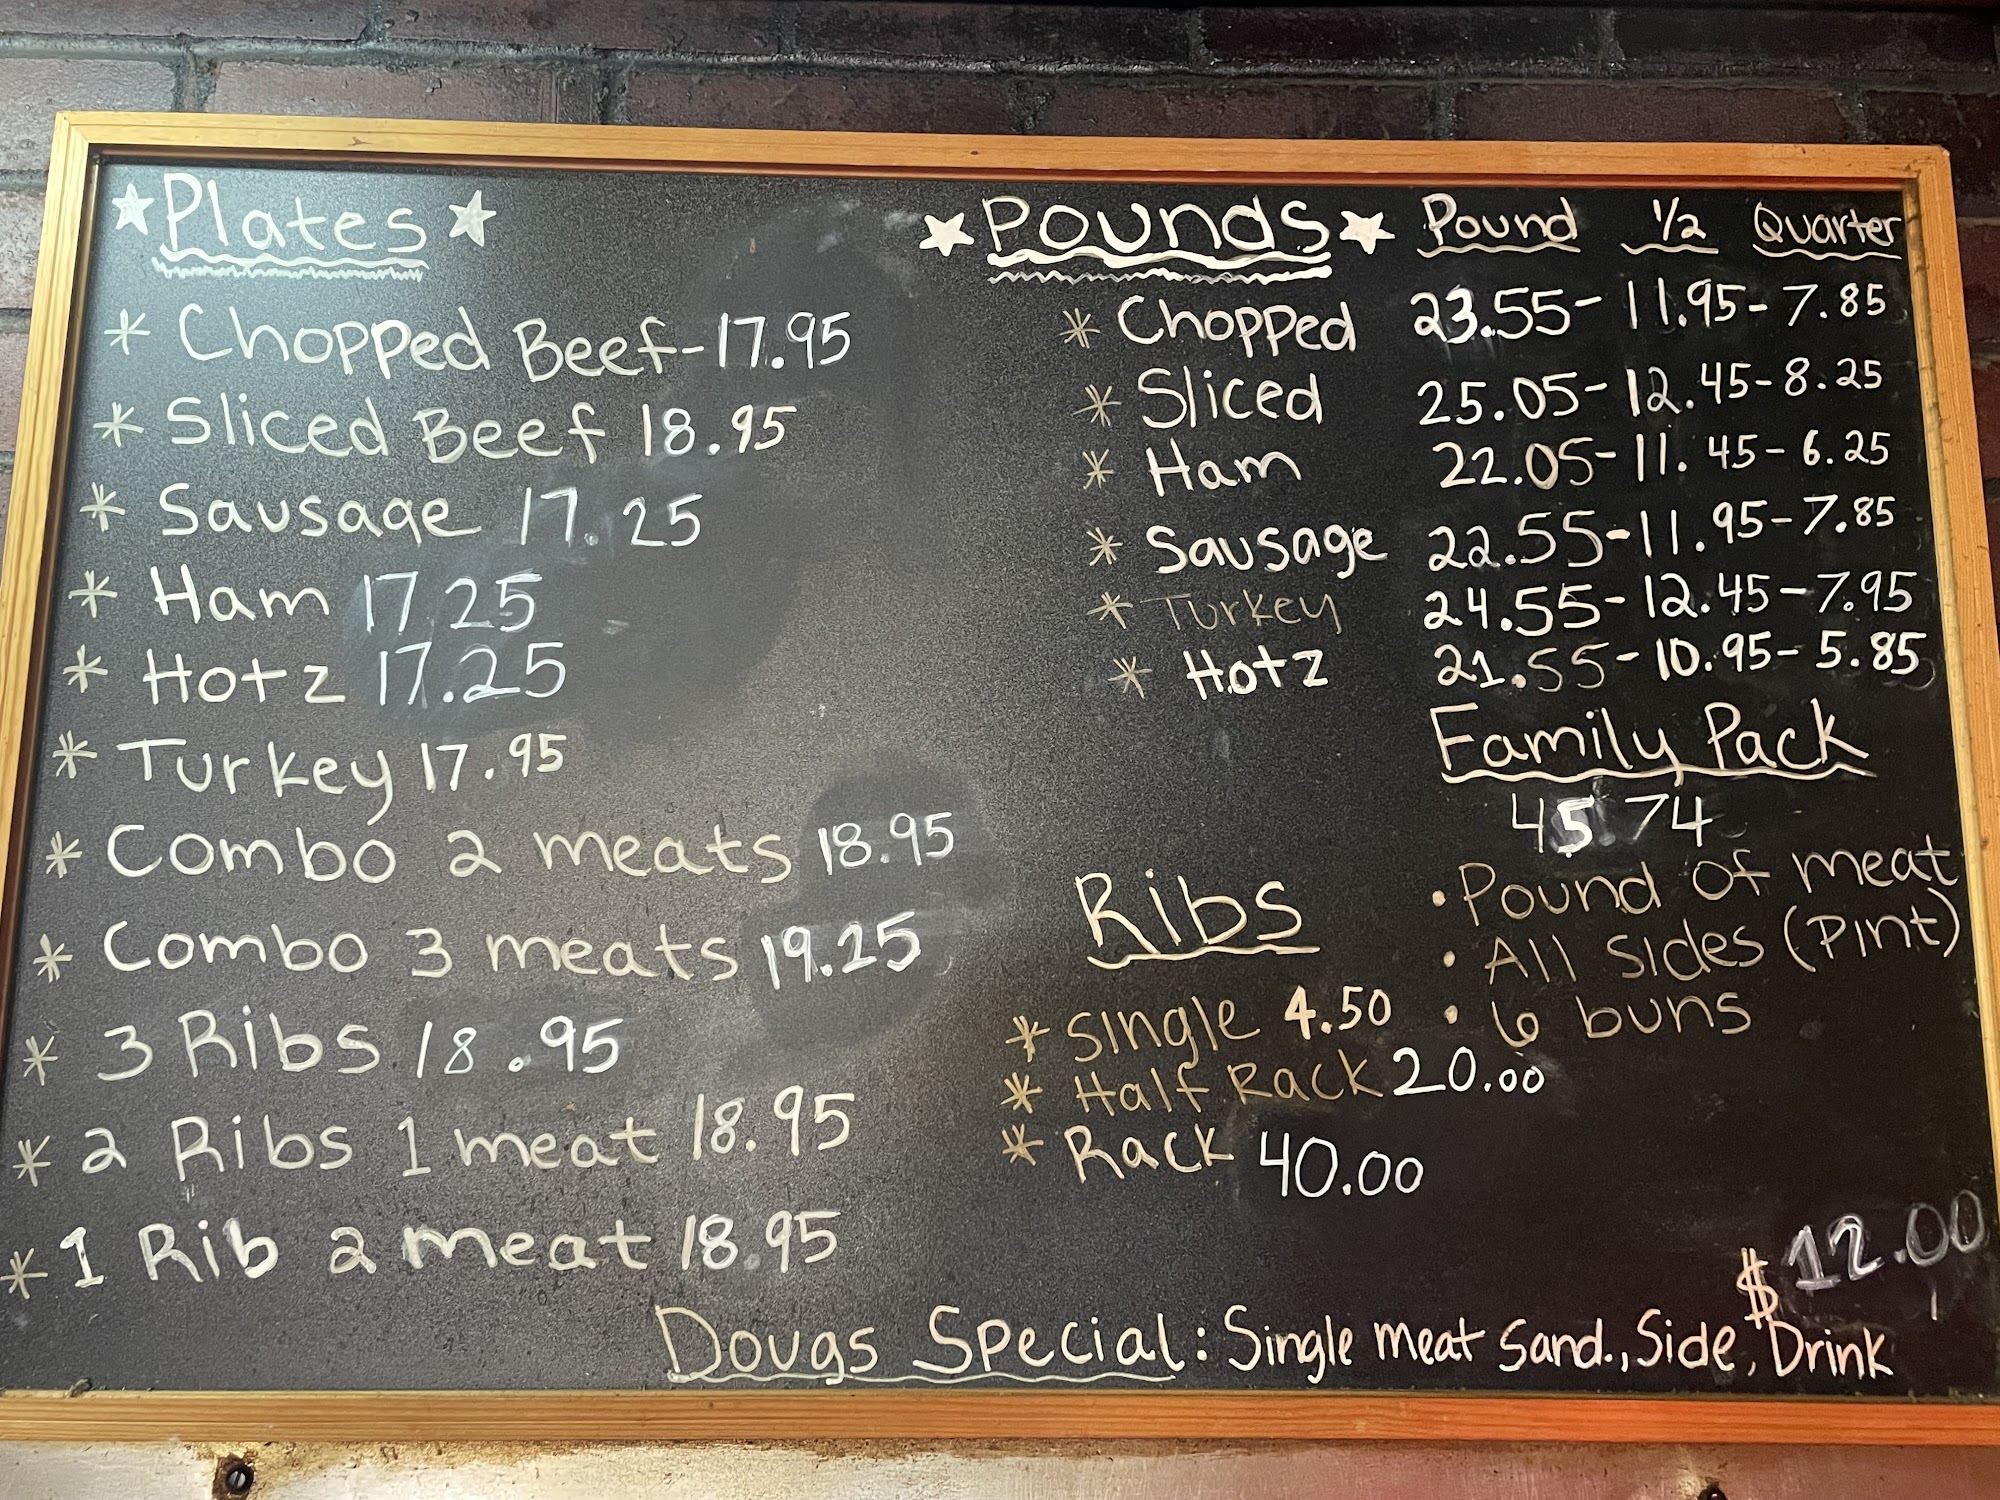 Plates
* Chopped Beef - 17.95
* Sliced Beef 18.95
* Sausage 17.25
* Ham 17.25
* Hotz 17.25
* Turkey 17.95
* Combo 2 meats 18.95
* Combo 3 meats 19.25
* 3 Ribs 18.95
* 2 Ribs 1 meat 18.95
* 1 Rib 2 meat 18.95
Pounds Pound 1/2 Quarter
* Chopped 23.55 - 11.95 - 7.85
* Sliced 25.05 - 12.45 - 8.25
* Ham 22.05 - 11.45 - 6.25
* Sausage 22.55 - 11.95 - 7.85
* Turkey 24.55 - 12.45 - 7.95
* Hotz 21.55 - 10.95 - 5.85
Family Pack
45.74
• Pound of meat
• All sides (Pint)
• 6 buns
Ribs
* Single 4.50
* Half Rack 20.00
* Rack 40.00
$12.00
Dougs Special: Single meat Sand., Side, Drink